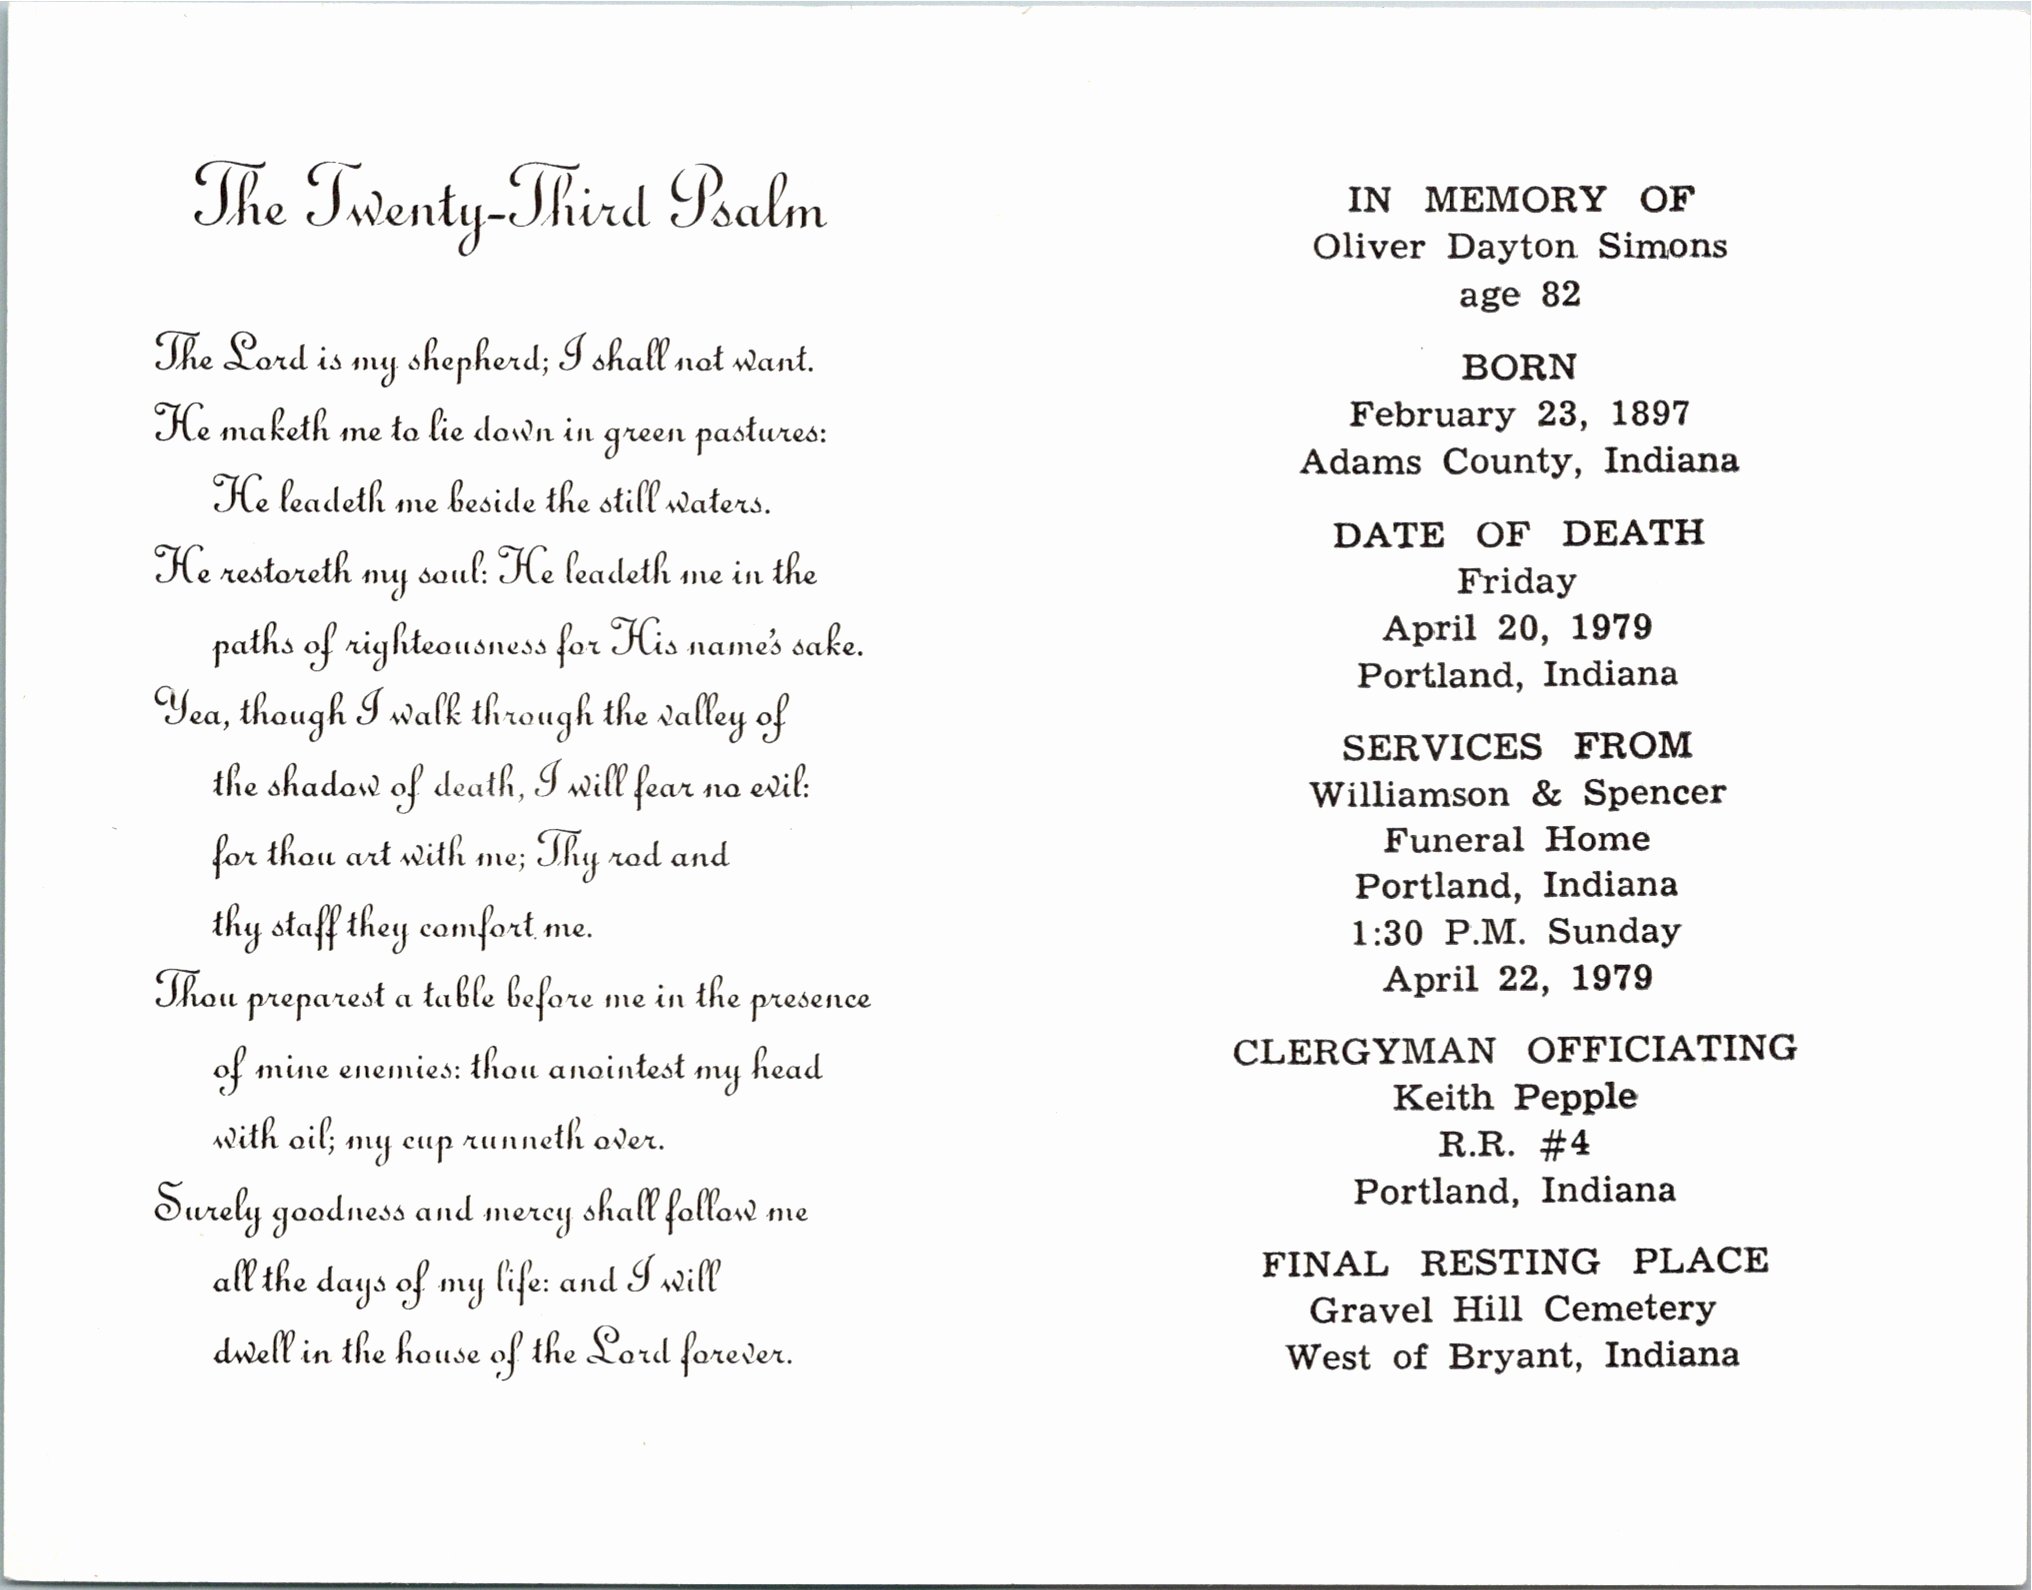 The Twenty-Third Psalm
The Lord is my shepherd; I shall not want.
He maketh me to lie down in green pastures:
He leadeth me beside the still waters.
He restoreth my soul: He leadeth me in the
paths of righteousness for His name's sake.
Yea, though I walk through the valley of
the shadow of death, I will fear no evil:
for thou art with me; Thy rod and
thy staff they comfort me.
Thou preparest a table before me in the presence
of mine enemies: thou anointest my head
with oil; my cup runneth over.
Surely goodness and mercy shall follow me
all the days of my life: and I will
dwell in the house of the Lord forever.
IN MEMORY OF
Oliver Dayton Simons
age 82
BORN
February 23, 1897
Adams County, Indiana
DATE OF DEATH
Friday
April 20, 1979
Portland, Indiana
SERVICES FROM
Williamson & Spencer
Funeral Home
Portland, Indiana
1:30 P.M. Sunday
April 22, 1979
CLERGYMAN OFFICIATING
Keith Pepple
R.R. #4
Portland, Indiana
FINAL RESTING PLACE
Gravel Hill Cemetery
West of Bryant, Indiana